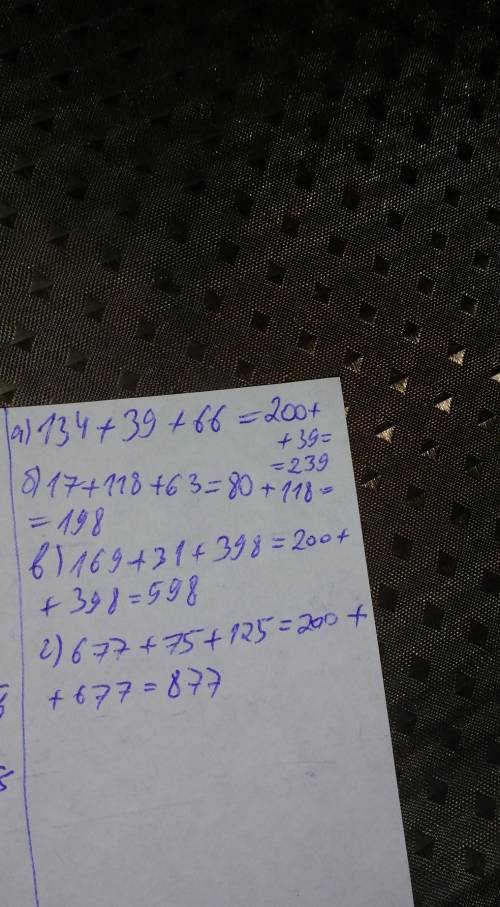 а) 134 + 39 + 66 = 200 +
+ 39 =
= 239
б) 17 + 118 + 63 = 80 + 118 =
= 198
в) 169 + 31 + 398 = 200 +
+ 398 = 598
г) 677 + 75 + 125 = 200 +
+ 677 = 877